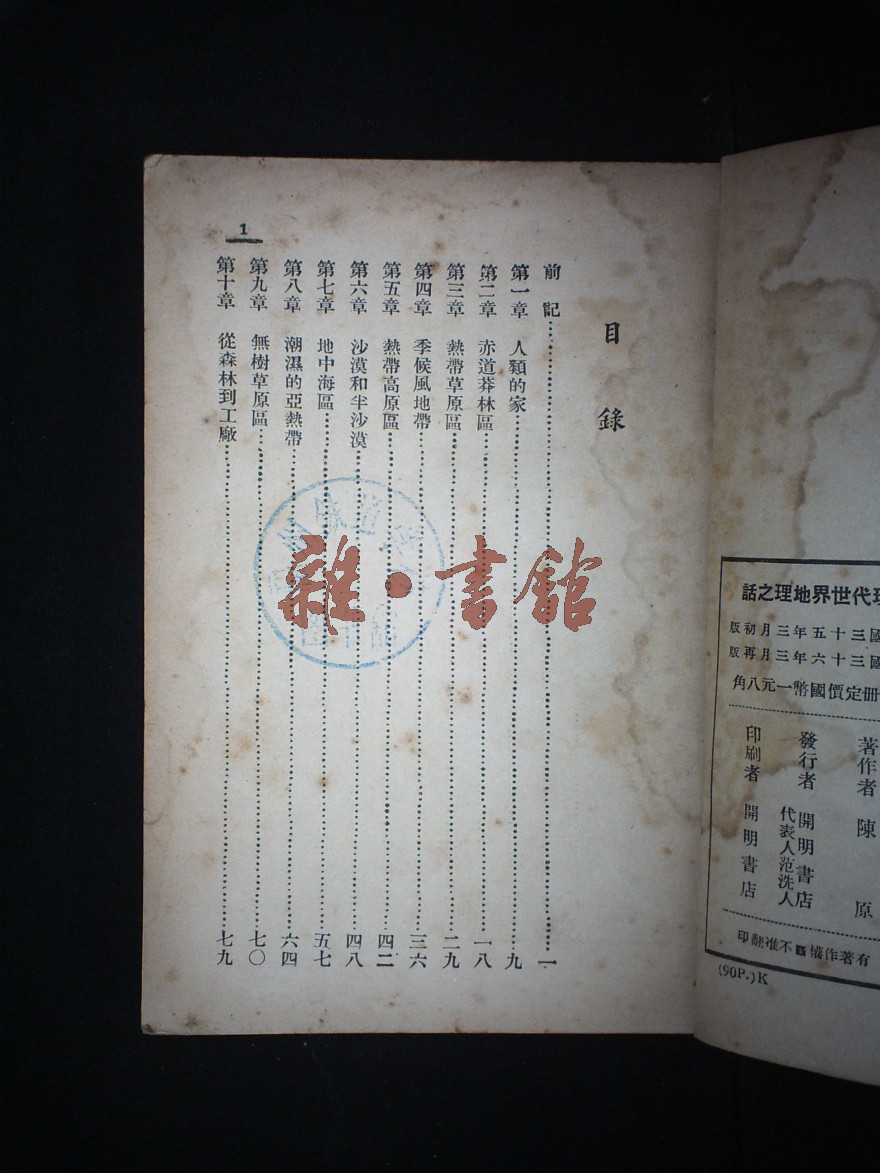 目錄
前記 一
第一章 人類的家 九
第二章 赤道莽林區 一八
第三章 熱帶草原區 二九
第四章 季候風地帶 三六
第五章 熱帶高原區 四二
第六章 沙漠和半沙漠 四八
第七章 地中海區 五七
第八章 潮濕的亞熱帶 六四
第九章 無樹草原區 七〇
第十章 從森林到工廠 七九
1
雜·書館
話之理地界世代
版初月三年五十三國
版再月三年六十三國
角八元一幣國價定冊
著作者 陳原
發行者 開明書店
代表人范洗人
印刷者 開明書店
有著作權 不准翻印
(90P.)K